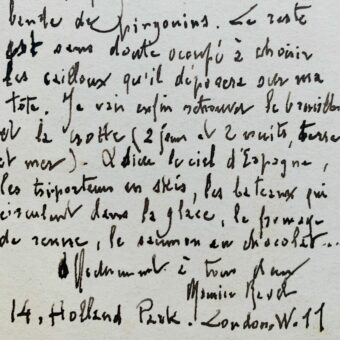 bande de pingouins. Le reste
est sans doute occupé à choisir
les cailloux qu'il déposera sur ma
tête. Je vais enfin retrouver le brouillard
et la crotte (2 jours et 2 nuits, terre
et mer). Adieu le ciel d'Espagne,
les triporteurs en skis, les bateaux qui
circulent dans la glace, le fromage
de renne, le saumon au chocolat...
à tous deux
Maurice Ravel
14, Holland Park. London. W. 11